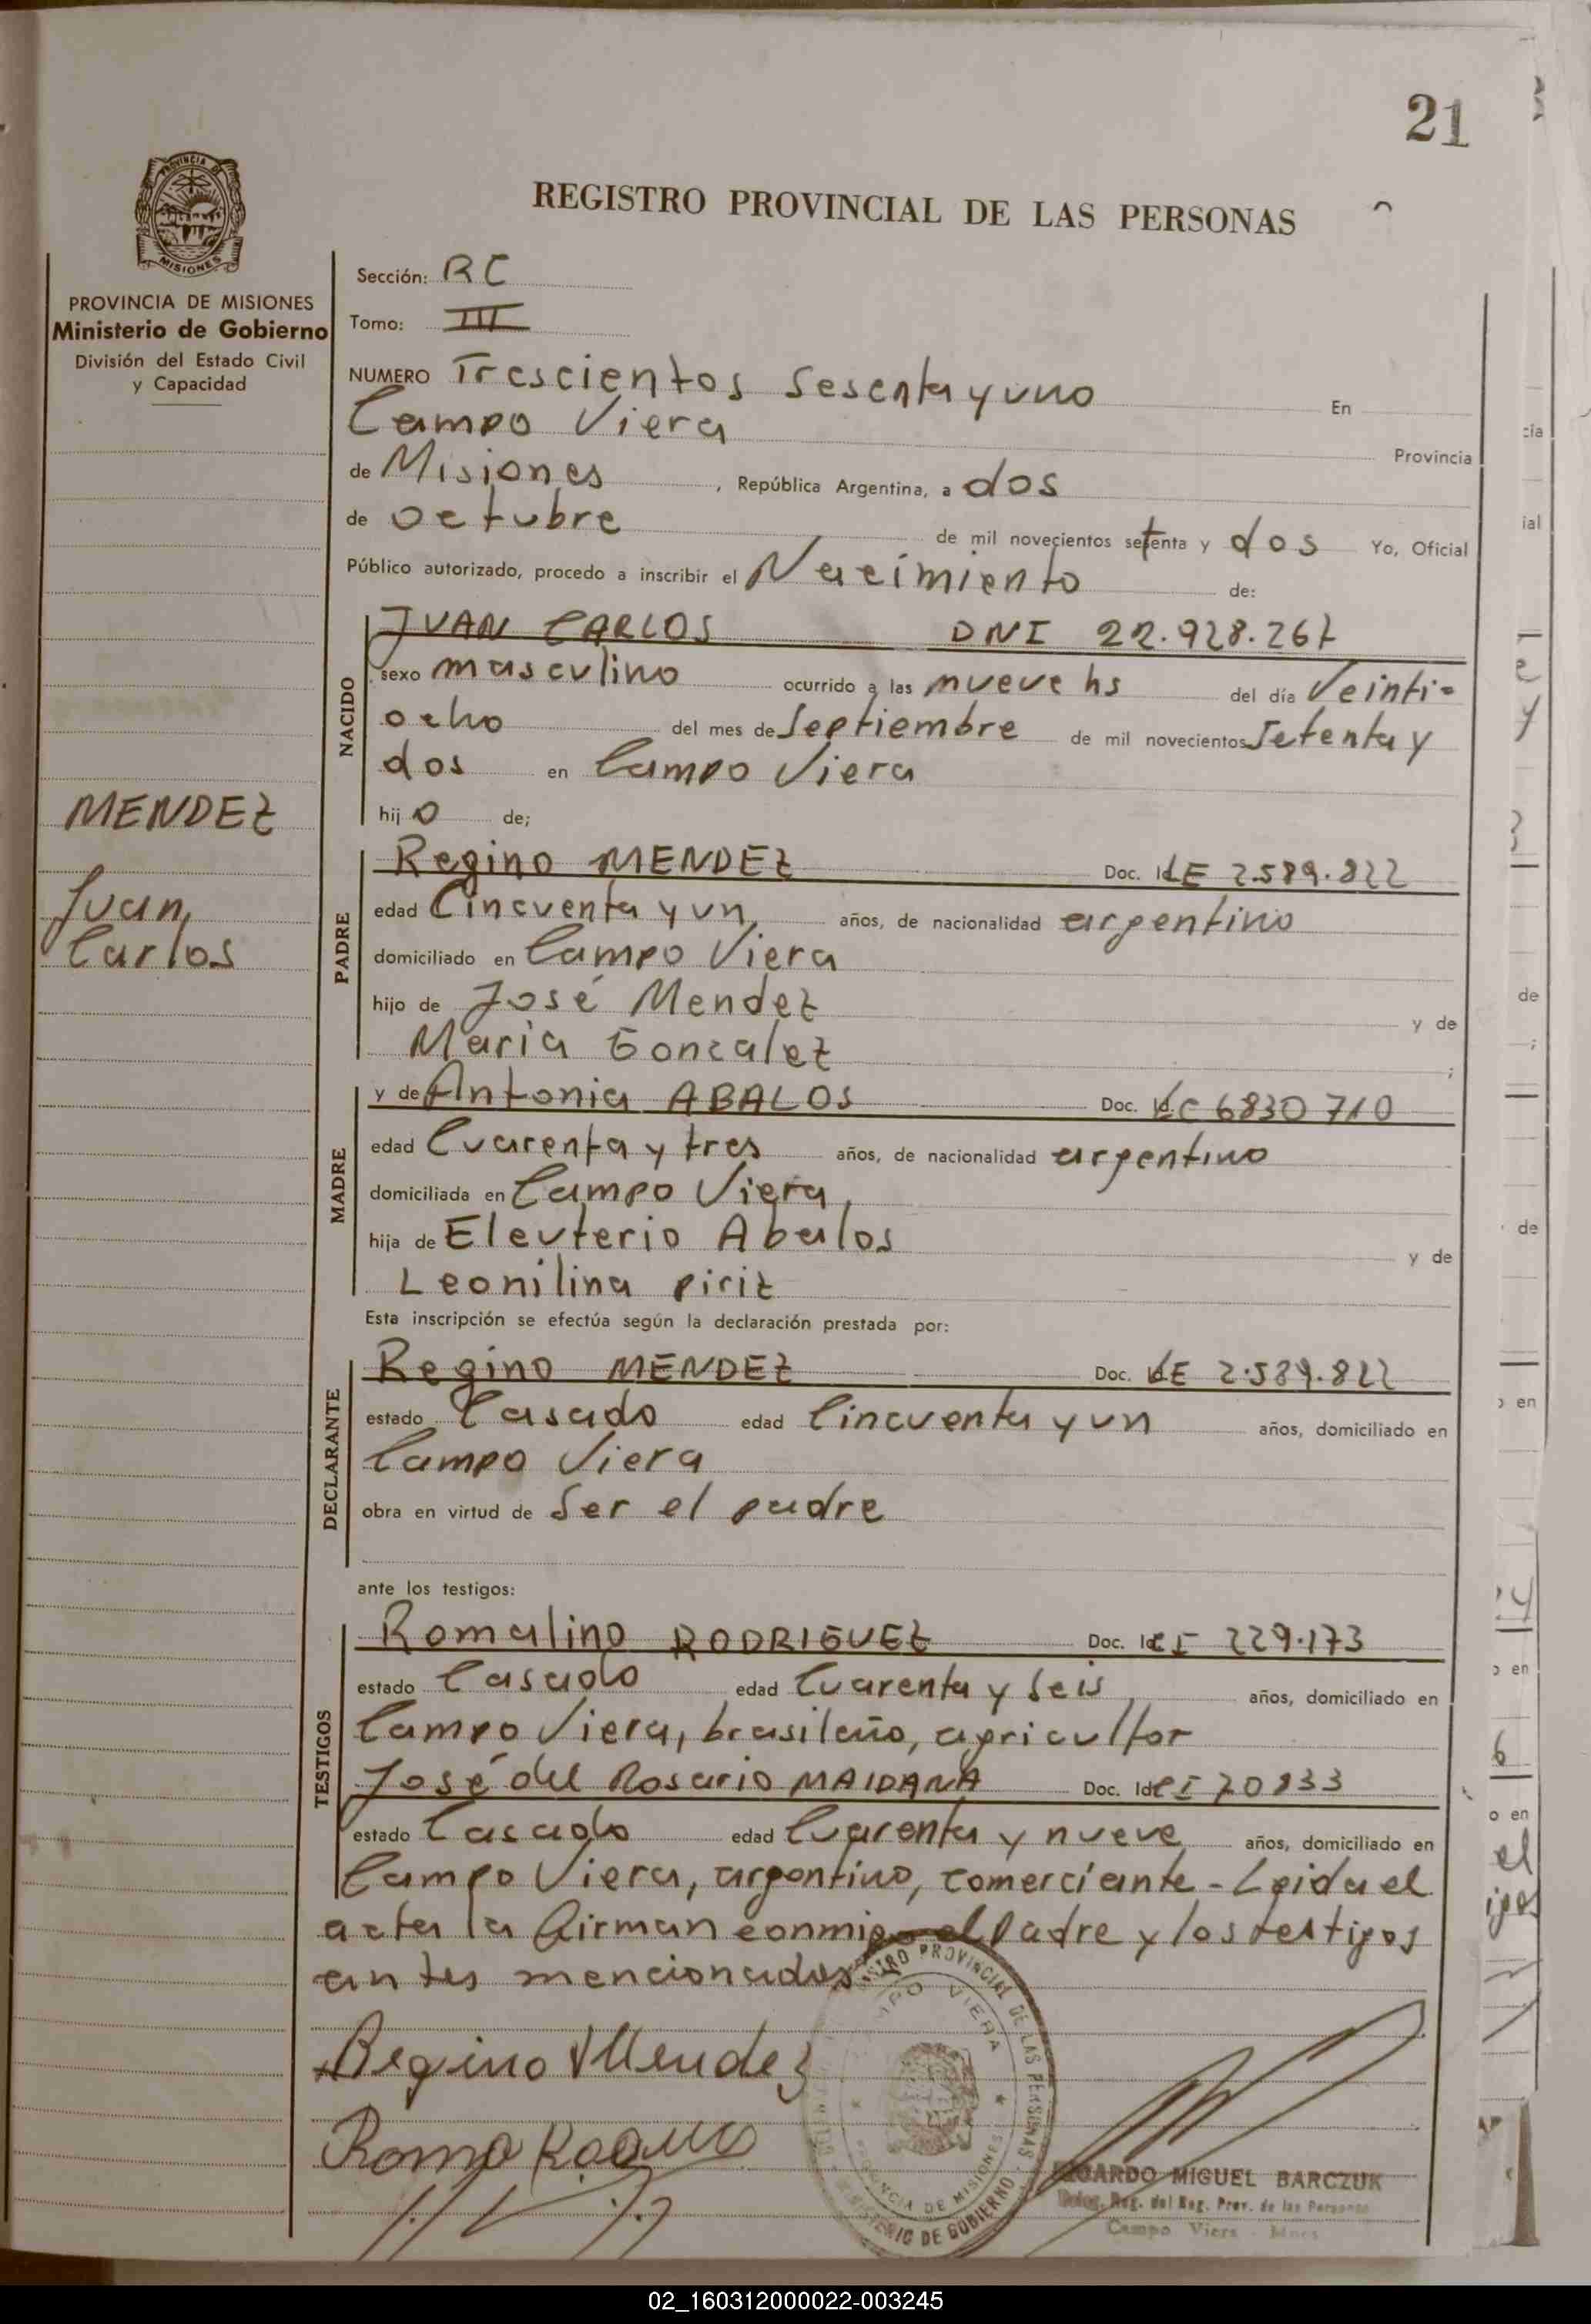 21
REGISTRO PROVINCIAL DE LAS PERSONAS
PROVINCIA DE MISIONES
Ministerio de Gobierno
División del Estado Civil
y Capacidad
Sección: RC
Tomo: III
NUMERO Trescientos sesenta y uno En
Campo Viera Provincia
de Misiones, República Argentina, a dos
de octubre de mil novecientos setenta y dos Yo, Oficial
Público autorizado, procedo a inscribir el Nacimiento de:
NACIDO
JUAN CARLOS DNI 22.928.267
sexo masculino ocurrido a las nueve hs del día Veinti-
ocho del mes de Septiembre de mil novecientos Setenta y
dos en Campo Viera
hijo de;
MENDEZ
Juan
Carlos
PADRE
Regino MENDEZ Doc. Id LE 2.589.822
edad Cincuenta y un años, de nacionalidad argentino
domiciliado en Campo Viera
hijo de José Mendez y de
Maria Gonzalez ;
MADRE
y de Antonia ABALOS Doc. LC 6830710
edad Cuarenta y tres años, de nacionalidad argentino
domiciliada en Campo Viera,
hija de Eleuterio Abalos y de
Leonilina Piriz
Esta inscripción se efectúa según la declaración prestada por:
DECLARANTE
Regino MENDEZ Doc. LE 2.589.822
estado Casado edad Cincuenta y un años, domiciliado en
Campo Viera
obra en virtud de Ser el padre
ante los testigos:
TESTIGOS
Romalino RODRIGUEZ Doc. Id CI 229.173
estado Casado edad Cuarenta y seis, años, domiciliado en
Campo Viera, brasileño, agricultor
José del Rosario MAIDANA Doc. Id CI 70833
estado Casado edad Cuarenta y nueve años, domiciliado en
Campo Viera, argentino, comerciante - Leida el
acta la firman conmigo el Padre y los testigos
antes mencionados
REGISTRO PROVINCIAL DE LAS PERSONAS
CAMPO VIERA
PROVINCIA DE MISIONES
MINISTERIO DE GOBIERNO
Regino Mendez
MIGUEL BARCZUK
Deleg. Reg. del Reg. Prov. de las Personas
Campo Viera - Mnes
02_160312000022-003245